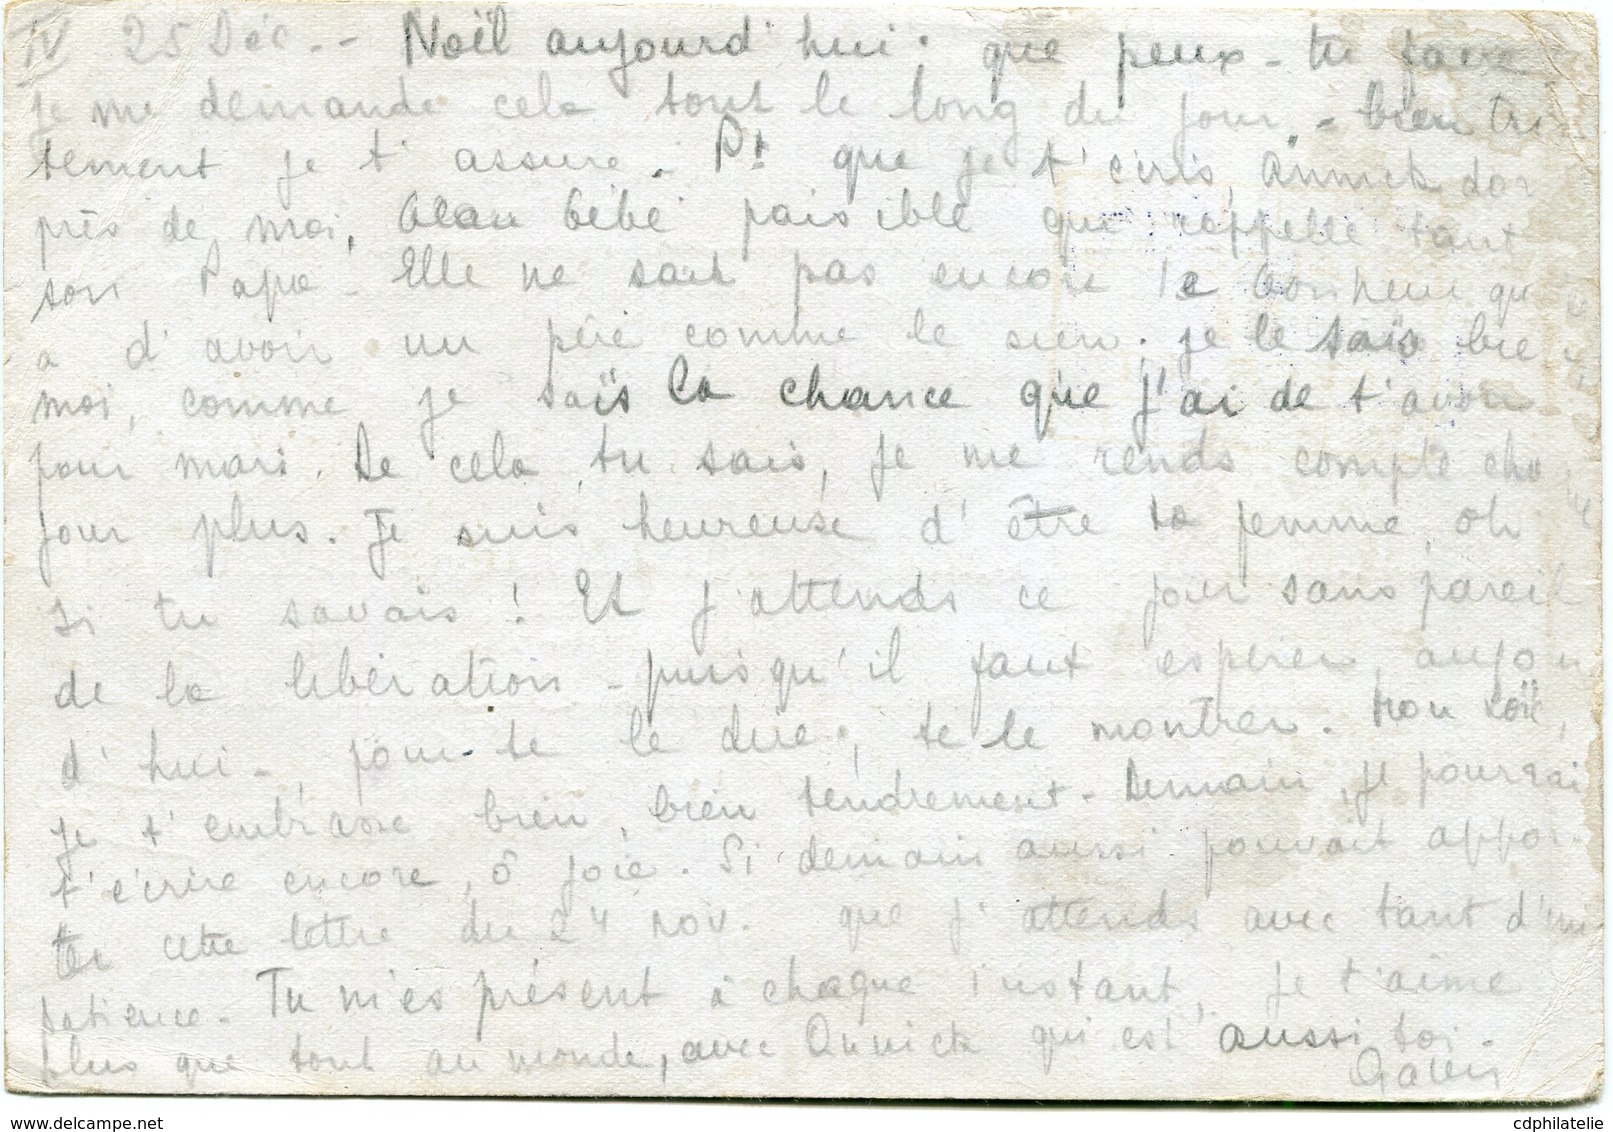 IV 25 Déc. - Noël aujourd'hui : que peux-tu faire
je me demande cela tout le long du jour. - bien tris
tement je t'assure. Pt que je t'écris, Annick dor
près de moi, beau bébé paisible qui rappelle tant
son Papa - Elle ne sait pas encore le bonheur qu
a d'avoir un père comme le sien. je le sais bie
moi, comme je saïs la chance que j'ai de t'avoir
pour mari. De cela, tu sais, je me rends compte cha
jour plus. Je suis heureuse d'être ta femme, oh
si tu savais ! Et j'attends ce jour sans pareil
de la libération - puisqu'il faut espérer, aujour
d'hui -, pour te le dire, te le montrer. Mon Loïc,
je t'embrasse bien, bien tendrement - Demain, je pourrai
t'écrire encore, ô joie. Si demain aussi pouvait appor-
ter cette lettre du 24 nov. que j'attends avec tant d'im
patience - Tu m'es présent à chaque instant, je t'aime
plus que tout au monde, avec Annick qui est aussi toi -
www.delcampe.net
cdphilatelie